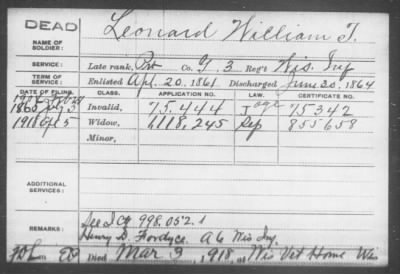 DEAD
NAME OF SOLDIER: Leonard William T.
SERVICE: Late rank, Pvt Co. G, 3 Reg't Wis. Inf
TERM OF SERVICE: Enlisted Apl. 20, 1861 Discharged June 30, 1864
DATE OF FILING. CLASS. APPLICATION NO. LAW. CERTIFICATE NO.
1865 Invalid, 75.444 age 75342
1918 Apl 5 Widow, 1118,245 Sep 855658
Minor,
ADDITIONAL SERVICES:
REMARKS: See I C# 998.052.1
Henry D. Fordyce. A 6 Wis Inf.
Died Mar 3, 1918, at Wis Vet Home Wis